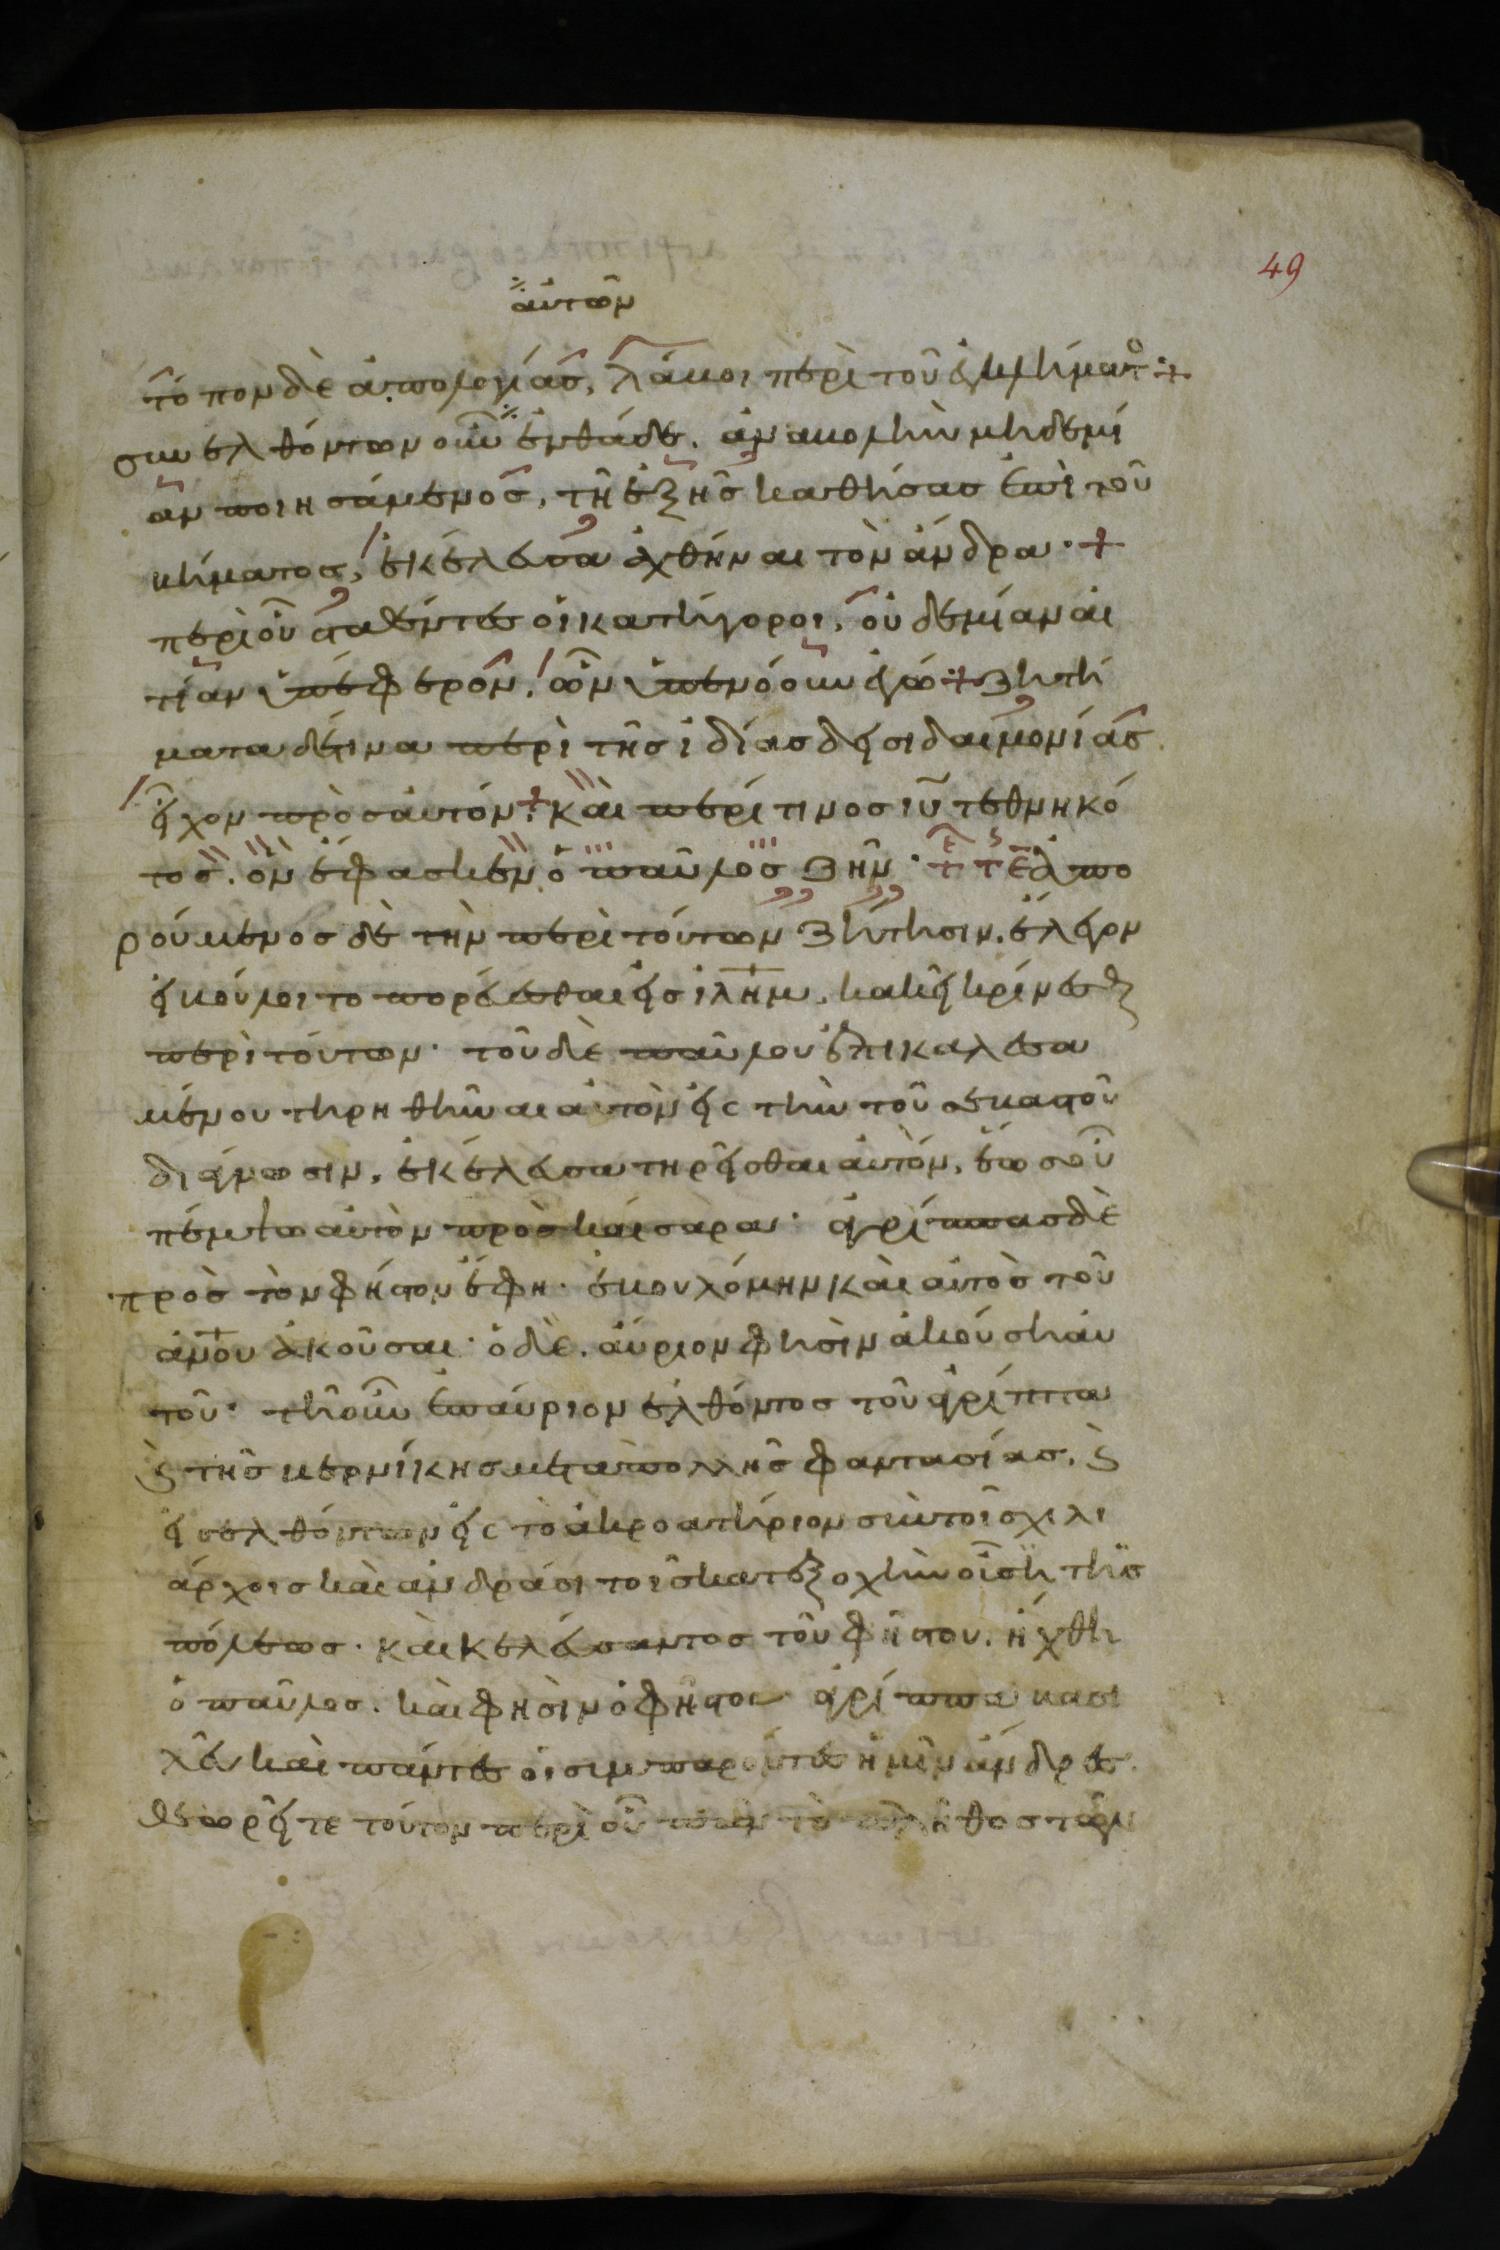 49
αὐτῶν
τόπον δὲ ἀπολογίας, λάβοι περὶ τοῦ ἐγκλήματο
συνελθόντων οὖν ἐνθάδε. ἀναβολὴν μηδεμί
αν ποιησάμενος, τῆ ἑξῆς καθήσας ἐπὶ τοῦ
βήματος, ἐκέλευσα ἀχθῆναι τὸν ἄνδρα·
περὶ οὗ σταθέντες οἱ κατήγοροι, οὐδεμίαν αἰ
τίαν ὑπέφερον, ὧν ὑπενόουν ἐγώ ζητή
ματα δέ τινα περὶ τῆς ἰδίας δεισιδαιμονίας
εἶχον πρὸς αὐτόν· καὶ περί τινος ιυ τεθνηκό
τος. ὃν ἔφασκεν ὁ παῦλος ζῆν· ἀπο
ρούμενος δὲ τὴν περὶ τούτων ζήτησιν. ἔλεγον
εἰ βούλοιτο πορεύεσθαι εἰς ιλημ. κακεῖ κρίνεσθαι
περὶ τούτων· τοῦ δὲ παύλου ἐπικαλεσα
μένου τηρηθῆναι αὐτὸν εἰς τὴν τοῦ σεβαστοῦ
διάγνωσιν. ἐκέλευσα τηρεῖσθαι αὐτόν. ἕως οὗ
πέμψω αὐτὸν πρὸς καίσαρα· ἀγρίππας δὲ
πρὸς τὸν φῆστον ἔφη· ἐβουλόμην καὶ αὐτὸς τοῦ
ανου ἀκοῦσαι· ὁ δὲ. αὔριον φησὶν ἀκούση αὐ
τοῦ· τῆ οὖν ἐπαύριον ἐλθόντος τοῦ ἀγρίππα
καὶ τῆς βερνίκης μετὰ πολλῆς φαντασίας. καὶ
εἰσελθόντων εἰς τὸ ἀκροατήριον σὺν τοῖς χιλι
άρχοις καὶ ἀνδράσι τοῖς κατ' ἐξοχὴν οὖσι τῆς
πόλεως· καὶ κελεύσαντος τοῦ φήστου. ἤχθη
ὁ παῦλος. καὶ φησὶν ὁ φῆστος· ἀγρίππα βασι
λεῦ καὶ πάντες οἱ συμπαρόντες ἡμῖν ἄνδρες.
θεωρεῖτε τοῦτον περὶ οὗ πᾶν τὸ πλῆθος τῶν